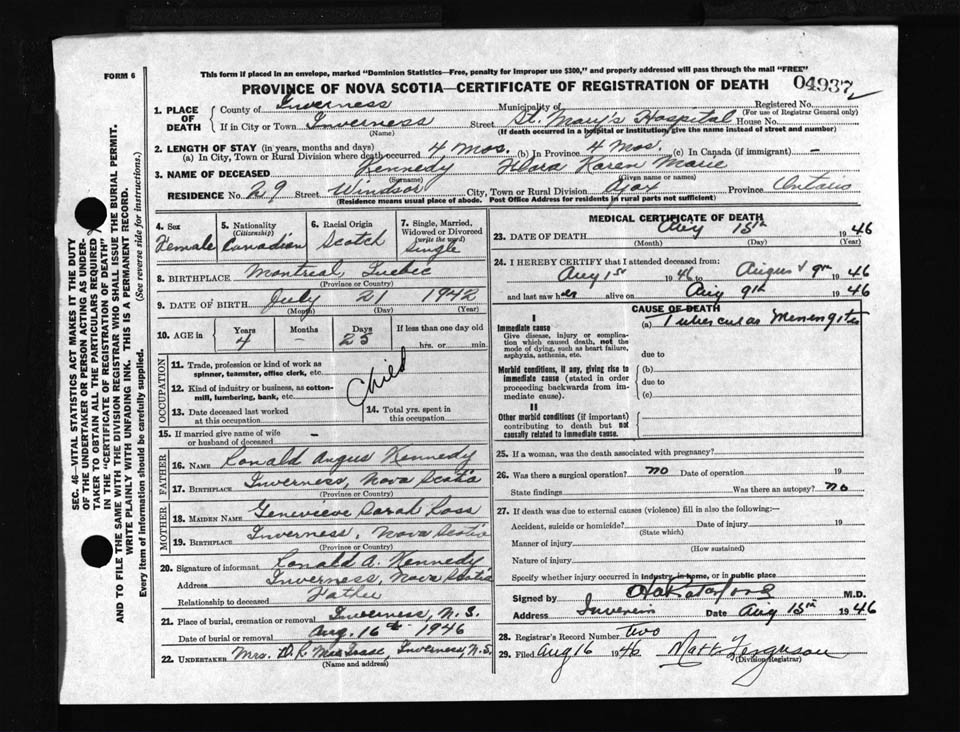 FORM 6
This form if placed in an envelope, marked "Dominion Statistics—Free, penalty for improper use $300," and properly addressed will pass through the mail "FREE"
PROVINCE OF NOVA SCOTIA—CERTIFICATE OF REGISTRATION OF DEATH 04937
1. PLACE OF DEATH County of Inverness Municipality of Registered No.
(For use of Registrar General only)
If in City or Town Inverness Street St. Mary's Hospital House No.
(Name) (If death occurred in a hospital or institution, give the name instead of street and number)
2. LENGTH OF STAY (in years, months and days)
(a) In City, Town or Rural Division where death occurred 4 mos. (b) In Province 4 mos. (c) In Canada (if immigrant) —
3. NAME OF DECEASED Kennedy Flora Karen Marie
(Surname) (Given name or names)
RESIDENCE No. 29 Street Windsor City, Town or Rural Division Ajax Province Ontario
(Residence means usual place of abode. Post Office Address for residents in rural parts not sufficient)
4. Sex Female
5. Nationality (Citizenship) Canadian
6. Racial Origin Scotch
7. Single, Married, Widowed or Divorced (write the word) Single
8. BIRTHPLACE Montreal, Quebec
(Province or Country)
9. DATE OF BIRTH July 21 1942
(Month) (Day) (Year)
10. AGE in Years 4 Months — Days 25 If less than one day old hrs. or min.
OCCUPATION
11. Trade, profession or kind of work as spinner, teamster, office clerk, etc.
12. Kind of industry or business, as cotton-mill, lumbering, bank, etc.
Child
13. Date deceased last worked at this occupation
14. Total yrs. spent in this occupation
15. If married give name of wife or husband of deceased —
FATHER
16. NAME Ronald Angus Kennedy
17. BIRTHPLACE Inverness, Nova Scotia
(Province or Country)
MOTHER
18. MAIDEN NAME Genevieve Sarah Ross
19. BIRTHPLACE Inverness, Nova Scotia
(Province or Country)
20. Signature of informant Ronald A. Kennedy
Address Inverness, Nova Scotia
Relationship to deceased Father
21. Place of burial, cremation or removal Inverness, N.S.
Date of burial or removal Aug. 16th 1946
22. UNDERTAKER Mrs. D. R. MacIsaac, Inverness, N.S.
(Name and address)
MEDICAL CERTIFICATE OF DEATH
23. DATE OF DEATH Aug 15th 1946
(Month) (Day) (Year)
24. I HEREBY CERTIFY that I attended deceased from:
Aug 1st 1946 to August 9th 1946
and last saw her alive on Aug 9th 1946
CAUSE OF DEATH
I
Immediate cause
Give disease, injury or complication which caused death, not the mode of dying, such as heart failure, asphyxia, asthenia, etc.
(a) Tubercular Meningitis
due to
Morbid conditions, if any, giving rise to immediate cause (stated in order proceeding backwards from immediate cause).
(b)
due to
(c)
II
Other morbid conditions (if important) contributing to death but not causally related to immediate cause.
25. If a woman, was the death associated with pregnancy?
26. Was there a surgical operation? no Date of operation 19
State findings Was there an autopsy? no
27. If death was due to external causes (violence) fill in also the following:—
Accident, suicide or homicide? Date of injury 19
(State which)
Manner of injury
(How sustained)
Nature of injury
Specify whether injury occurred in industry, in home, or in public place
Signed by M.D.
Address Inverness Date Aug 15th 1946
28. Registrar's Record Number two
29. Filed Aug 16 1946 Matt Ferguson
(Division Registrar)
SEC. 46—VITAL STATISTICS ACT MAKES IT THE DUTY
OF THE UNDERTAKER OR PERSON ACTING AS UNDER-
TAKER TO OBTAIN ALL THE PARTICULARS REQUIRED
IN THE "CERTIFICATE OF REGISTRATION OF DEATH"
AND TO FILE THE SAME WITH THE DIVISION REGISTRAR WHO SHALL ISSUE THE BURIAL PERMIT.
WRITE PLAINLY WITH UNFADING INK. THIS IS A PERMANENT RECORD.
Every item of information should be carefully supplied. (See reverse side for instructions.)